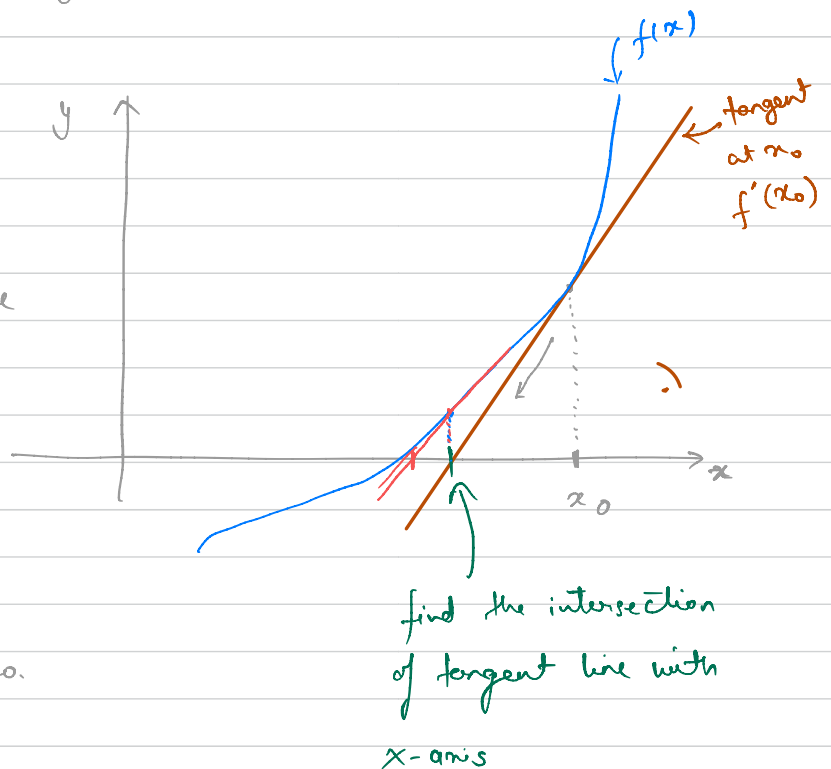 f(x)
y
tangent
at x₀
f'(x₀)
x
x₀
find the intersection
of tangent line with
x-axis
o.